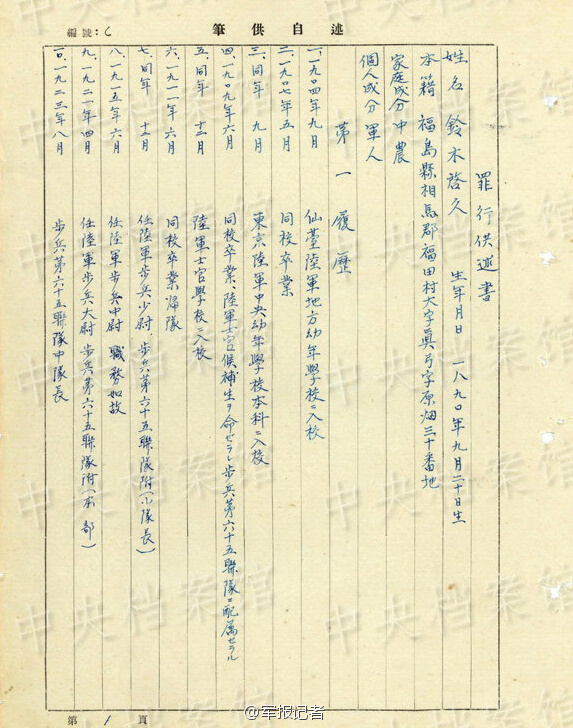 筆供自述
編號：6
罪行供述書
姓名 鈴木啓久 生年月日 一八九〇年九月二十日生
本籍 福島縣相馬郡福田村大字眞弓字原畑三十番地
家庭成分 中農
個人成分 軍人
第一 履歷
一、一九〇四年九月 仙臺陸軍地方幼年學校ニ入校
二、一九〇七年五月 同校卒業
三、同年 九月 東京陸軍中央幼年學校本科ニ入校
四、一九〇九年六月 同校卒業、陸軍士官候補生ヲ命ゼラレ步兵第六十五聯隊ニ配屬セラル
五、同年 十二月 陸軍士官學校ニ入校
六、一九一一年 六月 同校卒業歸隊
七、同年 十二月 任陸軍步兵少尉 步兵第六十五聯隊附（小隊長）
八、一九一五年六月 任陸軍步兵中尉 職務如故
九、一九二一年四月 任陸軍步兵大尉 步兵第六十五聯隊附（本部）
一〇、一九二三年八月 步兵第六十五聯隊中隊長
第 1 頁
中央档案馆
@军报记者